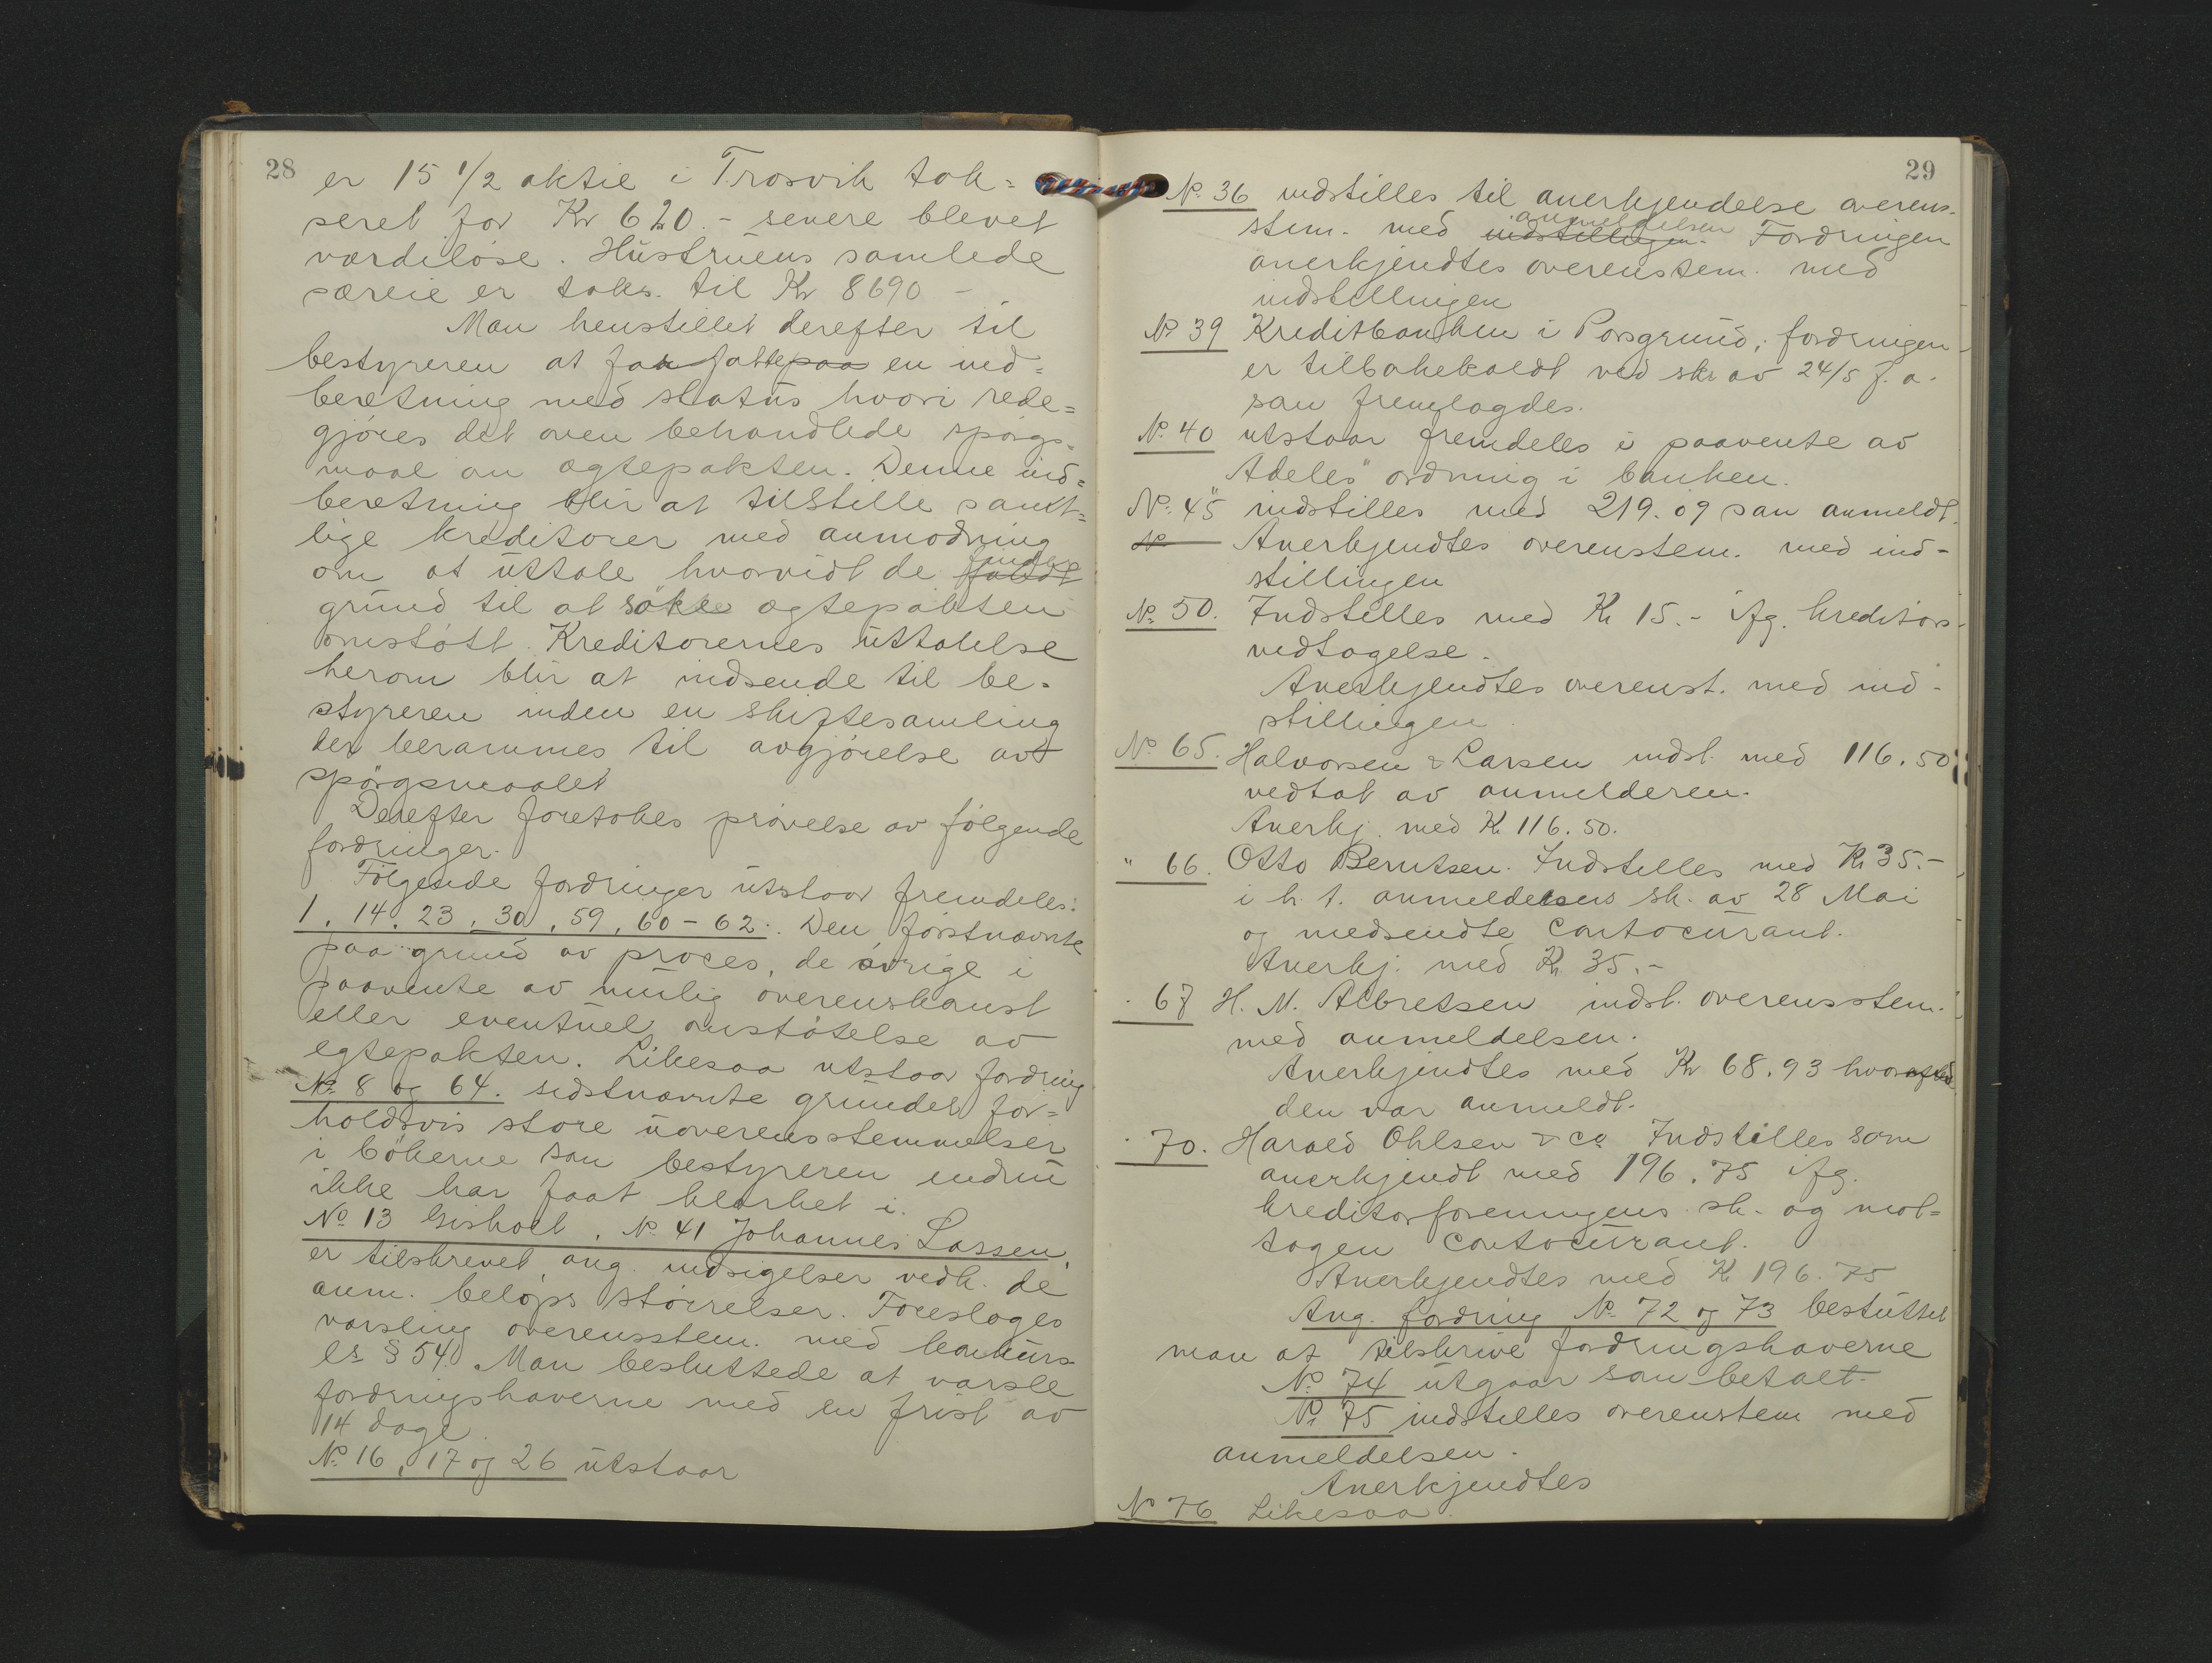 28
er 15 1/2 aktie i Trosvik tak=
seret for Kr 620.- senere blevet
værdiløse. Hustruens samlede
særeie er taks. til Kr 8690 -
Man henstillet derefter til
bestyreren at faa fattepaa en ind=
beretning med status hvori rede=
gjøres det oven behandlede spørgs=
maal om ægtepakten. Denne ind=
beretning blir at tilstille samt=
lige kreditorer med anmodning
om at uttale hvorvidt de fandt finder
grund til at søke ægtepakten
omstøtt. Kreditorernes uttalelse
herom blir at indsende til be=
styreren inden en skiftesamling
der berammes til avgjørelse av
spørgsmaalet
Derefter foretokes prøvelse av følgende
fordringer.
Følgende fordringer utstaar fremdeles:
1, 14, 23, 30, 59, 60-62. Den førstnævnte
paa grund av proces, de øvrige i
paavente av mulig overenskomst
eller eventuel omstøtelse av
egtepakten. Likesaa utstaar fordring
No 8 og 64. sidstnævnte grundet for=
holdsvis store uoverensstemmelser
i bøkerne som bestyreren endnu
ikke har faat klarhet i.
No 13 Gisholt, No 41 Johannes Lassen,
er tilskrevet ang. indsigelser vedk. de
anm. beløps størrelser. Foreslages
varsling overensstem. med konkurs
ls § 54. Man besluttede at varsle
fordringshaverne med en frist av
14 dage.
No 16, 17 og 26 utstaar
29
No 36 indstilles til anerkjendelse overens-
stem. med indstillingen. anmeldelsen Fordringen
anerkjendtes overenstem. med
indstillingen
No 39 Kreditbanken i Porsgrund, fordringen
er tilbakekaldt ved skr av 24/5 f. a.
som fremlagdes.
No 40 utstaar fremdeles i paavente av
"Adeles" ordning i banken.
No 45 indstilles med 219.09 som anmeldt.
No Anerkjendtes overenstem. med ind-
stillingen
No 50. Indstilles med Kr 15.- ifg. kreditors-
vedtagelse.
Anerkjendtes overenst. med ind-
stillingen.
No 65. Halvorsen & Larsen indst. med 116.50
vedtat av anmelderen.
Anerkj. med Kr 116.50.
" 66. Otto Berntsen. Indstilles med Kr 35.-
i h. t. anmelderens sk. av 28 Mai
og medsendte Contocurant.
Anerkj. med Kr 35.-
" 67 H. M. Albretsen indst. overensstem.
med anmeldelsen.
Anerkjendtes med Kr 68.93 hvor
den var anmeldt.
" 70. Harald Ohlsen & Co Indstilles som
anerkjendt med 196.75 ifg.
kreditorforeningens sk. og mot=
tagen Contocurant.
Anerkjendtes med Kr 196.75
Ang. fordring No 72 og 73 besluttet
man at tilskrive fordringshaverne
No 74 utgaar som betalt.
No 75 indstilles overenstem med
anmeldelsen.
Anerkjendtes
No 76 Likesaa.